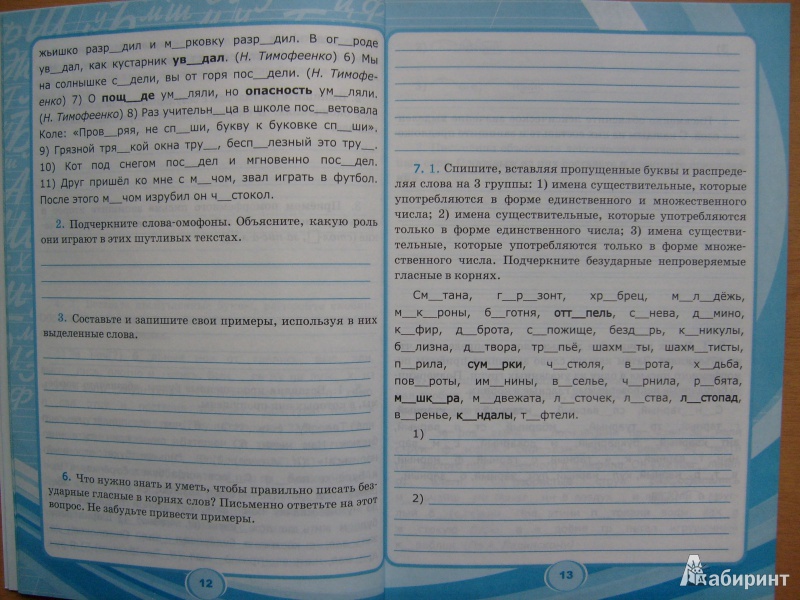 жьишко разр__дил и м__рковку разр__дил. В ог__роде
ув__дал, как кустарник ув__дал. (Н. Тимофеенко) 6) Мы
на солнышке с__дели, вы от горя пос__дели. (Н. Тимофе-
енко) 7) О пощ__де ум__ляли, но опасность ум__ляли.
(Н. Тимофеенко) 8) Раз учительн__ца в школе пос__ветовала
Коле: «Пров__ряя, не сп__ши, букву к буковке сп__ши».
9) Грязной тря__кой окна тру__, бесп__лезный это тру__.
10) Кот под снегом пос__дел и мгновенно пос__дел.
11) Друг пришёл ко мне с м__чом, звал играть в футбол.
После этого м__чом изрубил он ч__стокол.
2. Подчеркните слова-омофоны. Объясните, какую роль
они играют в этих шутливых текстах.
3. Составьте и запишите свои примеры, используя в них
выделенные слова.
6. Что нужно знать и уметь, чтобы правильно писать без-
ударные гласные в корнях слов? Письменно ответьте на этот
вопрос. Не забудьте привести примеры.
12
7. 1. Спишите, вставляя пропущенные буквы и распреде-
ляя слова на 3 группы: 1) имена существительные, которые
употребляются в форме единственного и множественного
числа; 2) имена существительные, которые употребляются
только в форме единственного числа; 3) имена существи-
тельные, которые употребляются только в форме множе-
ственного числа. Подчеркните безударные непроверяемые
гласные в корнях.
См__тана, г__р__зонт, хр__брец, м__л__дёжь,
м__к__роны, б__готня, отт__пель, с__нева, д__мино,
к__фир, д__брота, с__пожище, бездр__рь, к__никулы,
б__лизна, д__твора, тр__пьё, шахм__ты, шахм__тисты,
п__рила, сум__рки, ч__стюля, в__рота, х__дьба,
пов__роты, им__нины, в__селье, ч__рнила, р__бята,
м__шк__ра, м__двежата, л__сточек, л__ства, л__стопад,
в__ренье, к__ндалы, т__фтели.
1)
2)
13
Лабиринт